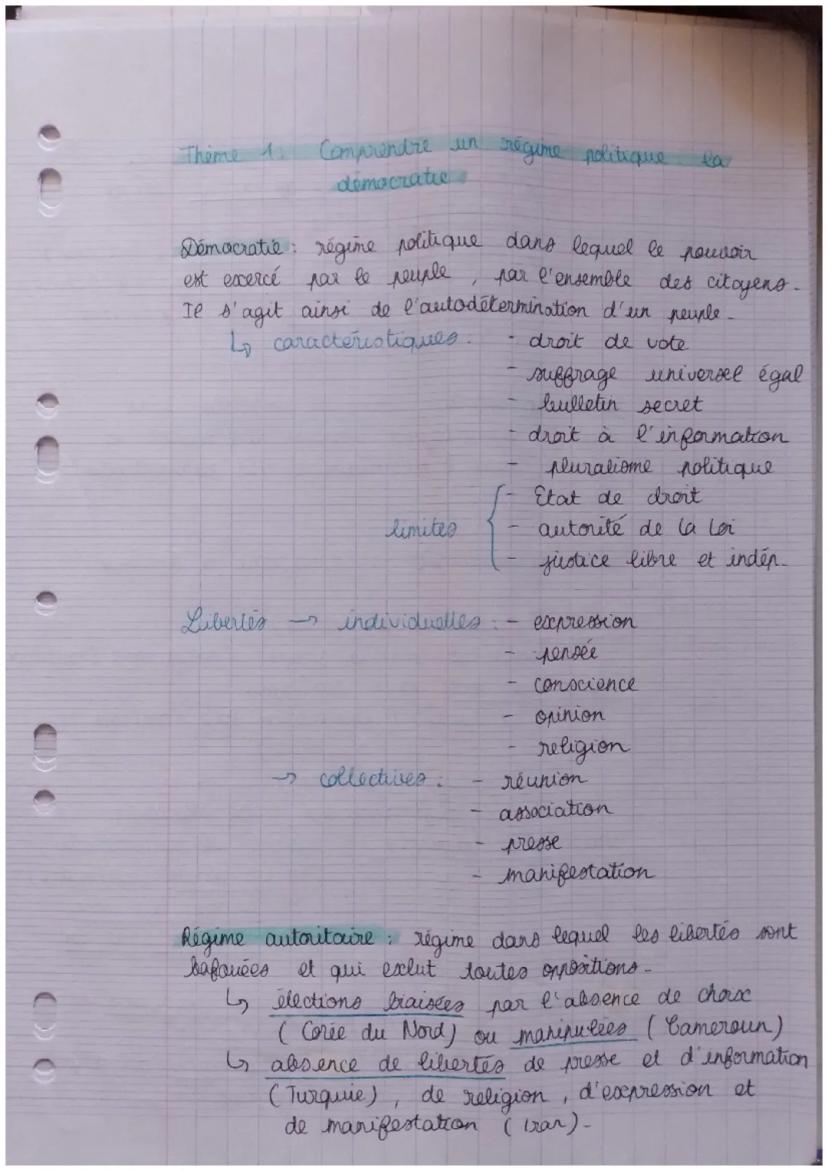 Thème 1: Comprendre un régime politique la
démocratie
Démocratie : régime politique dans lequel le pouvoir
est exercé par le peuple, par l'ensemble des citoyens.
Il s'agit ainsi de l'autodétermination d'un peuple.
↳ caractéristiques : - droit de vote
- suffrage universel égal
- bulletin secret
- droit à l'information
- pluralisme politique
- Etat de droit
limites - autorité de la loi
- justice libre et indép.
Libertés → individuelles : - expression
- pensée
- conscience
- opinion
- religion
→ collectives : - réunion
- association
- presse
- manifestation
Régime autoritaire : régime dans lequel les libertés sont
bafouées et qui exclut toutes oppositions.
↳ élections biaisées par l'absence de choix
(Corée du Nord) ou manipulées (Cameroun)
↳ absence de libertés de presse et d'information
(Turquie), de religion, d'expression et
de manifestation (Iran).